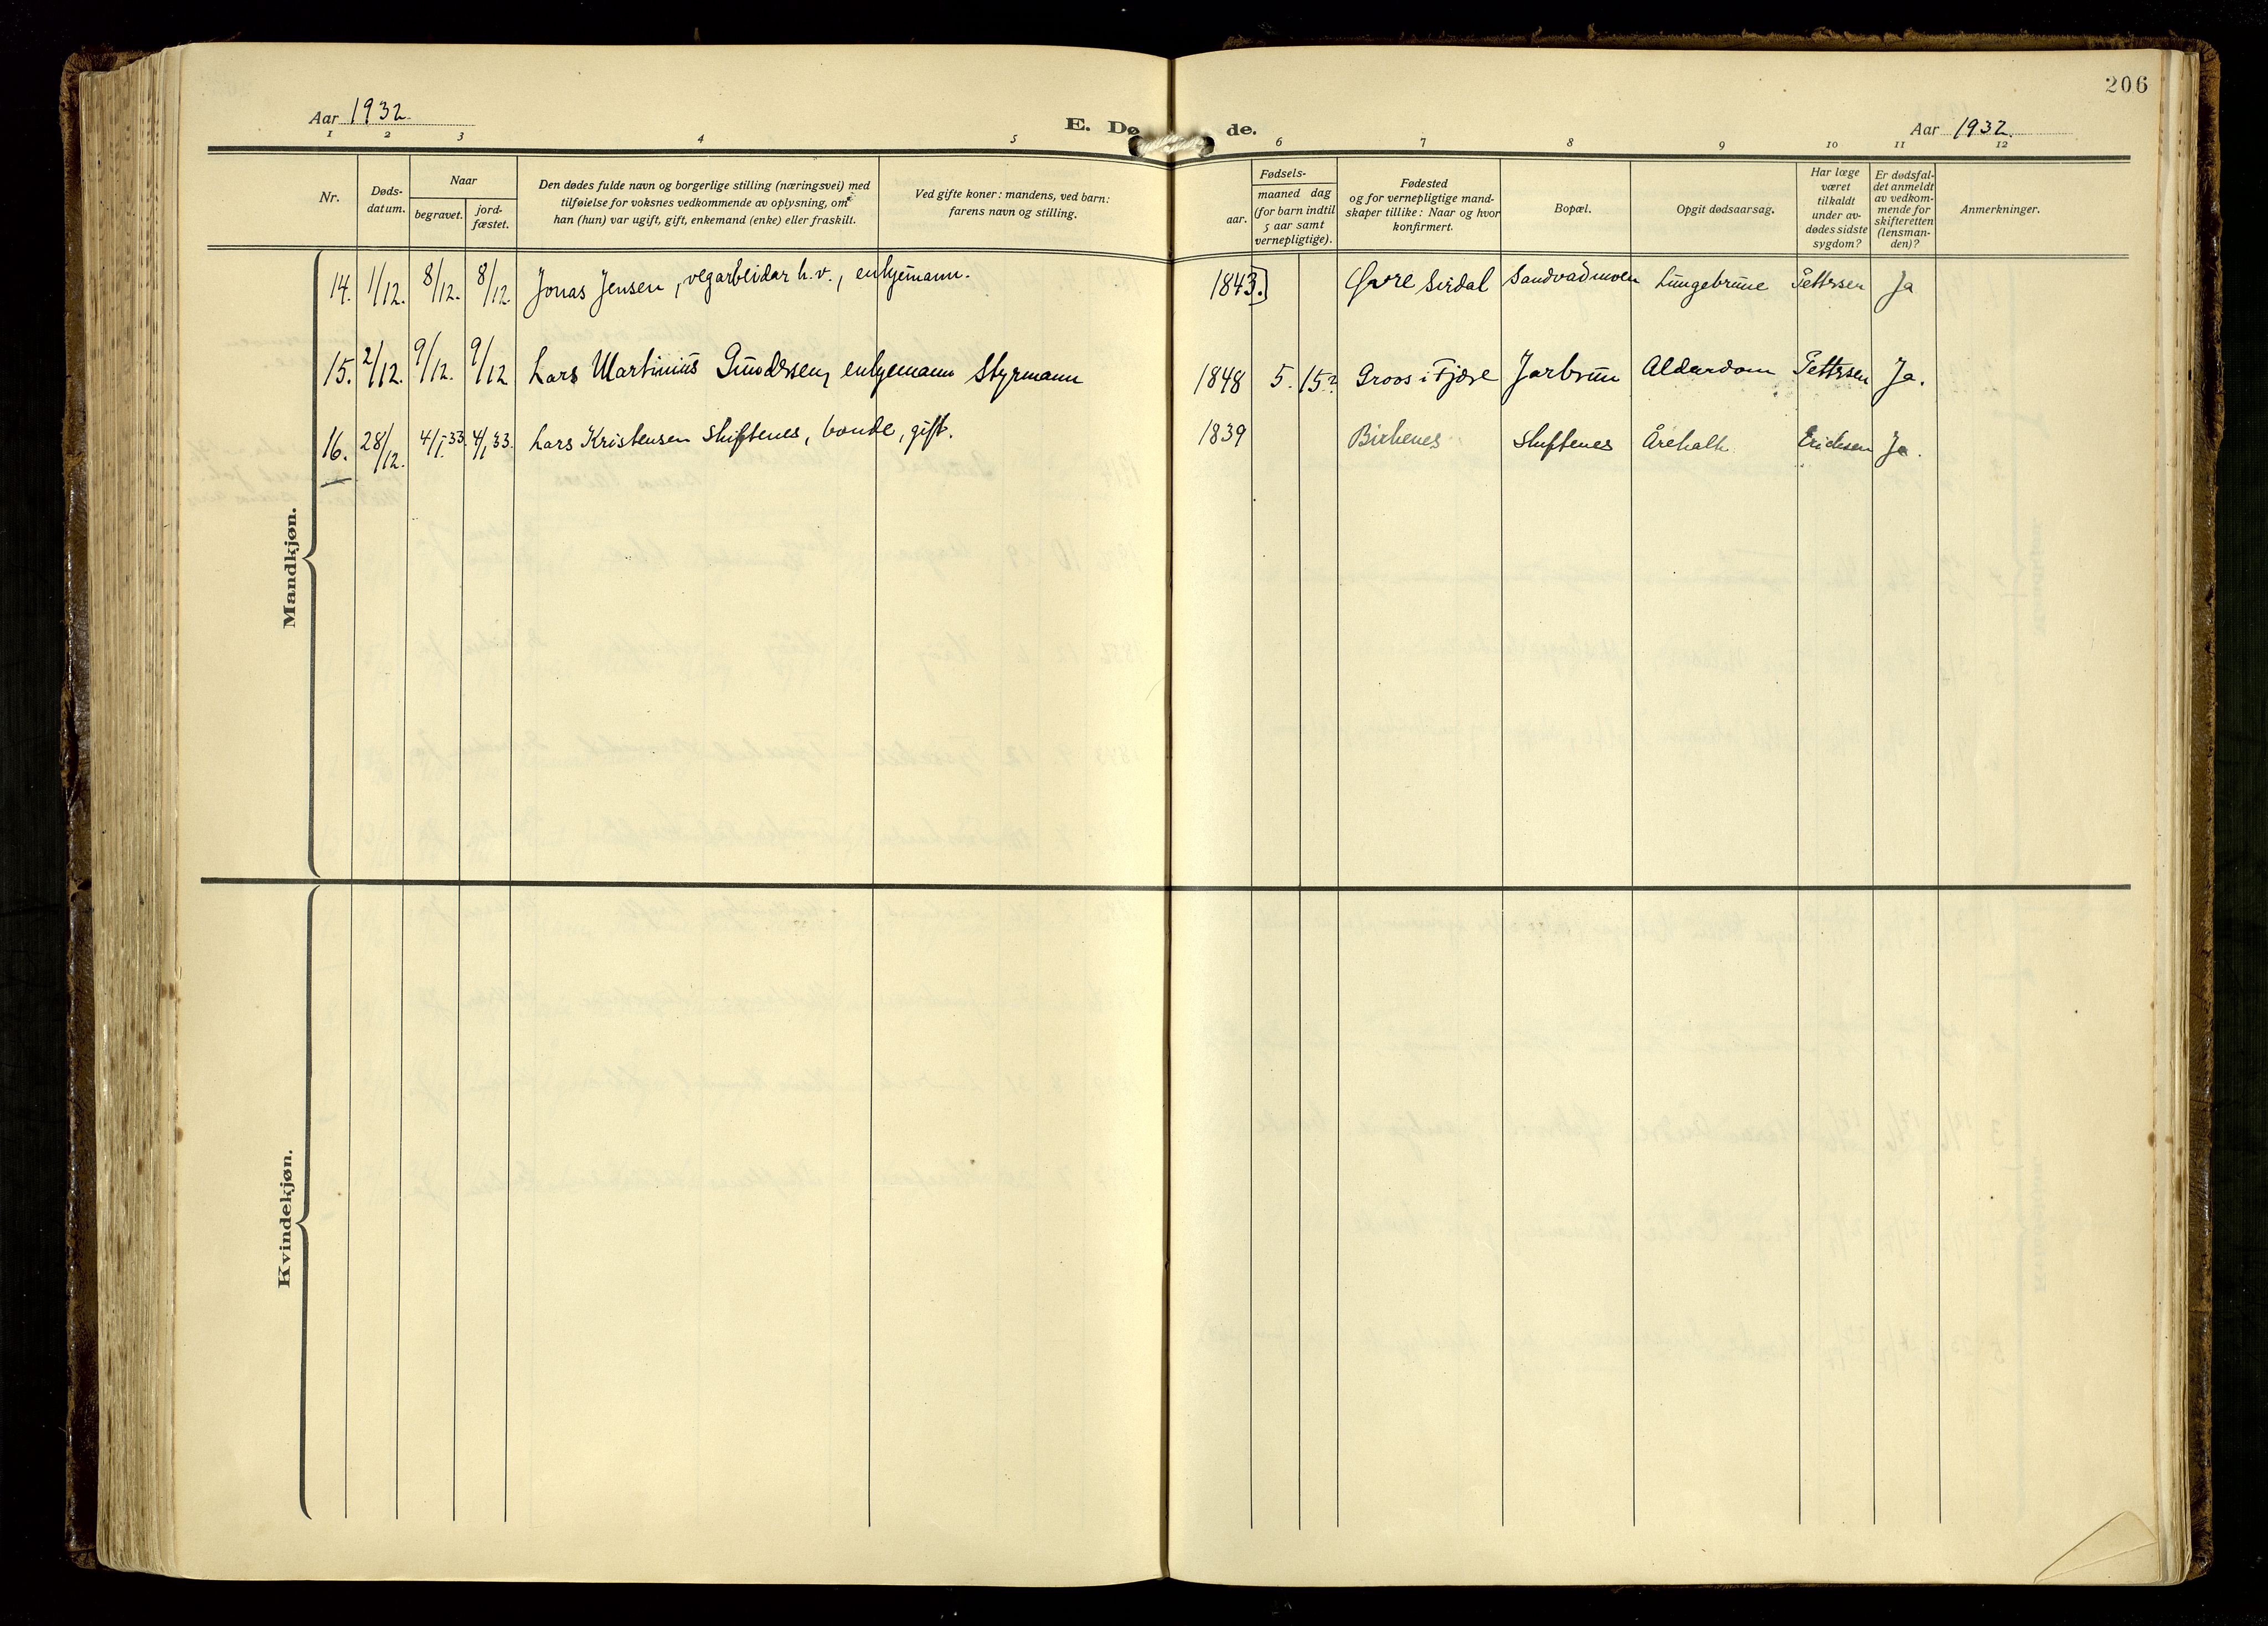 206
Aar 1932. E. Dø de. Aar 1932.
1 2 3 4 5 6 7 8 9 10 11 12
Nr.
Døds-
datum.
Naar
begravet.
jord-
fæstet.
Den dødes fulde navn og borgerlige stilling (næringsvei) med
tilføielse for voksnes vedkommende av oplysning, om
han (hun) var ugift, gift, enkemand (enke) eller fraskilt.
Ved gifte koner: mandens, ved barn:
farens navn og stilling.
Fødsels-
aar.
maaned dag
(for barn indtil
5 aar samt
vernepligtige).
Fødested
og for vernepligtige mand-
skaper tillike: Naar og hvor
konfirmert.
Bopæl.
Opgit dødsaarsag.
Har læge
været
tilkaldt
under av-
dødes sidste
sygdom?
Er dødsfal-
det anmeldt
av vedkom-
mende for
skifteretten
(lensman-
den)?
Anmerkninger.
Mandkjøn.
14. 1/12. 8/12. 8/12. Jonas Jensen, vegarbeidar h.v., enkjemann. 1843. Øvre Sirdal Sandvadmoen Lungebrune Pettersen Ja
15. 2/12. 9/12. 9/12 Lars Martinius Gundersen, enkjemann Styrmann 1848 5. 15? Groos i Fjære Jarbrun Alderdom Pettersen Ja.
16. 28/12. 4/1.33. 4/1 33. Lars Kristensen Skiftenes, bonde, gift. 1839 Birkenes Skiftenes Årekalk Ericksen Ja.
Kvindekjøn.